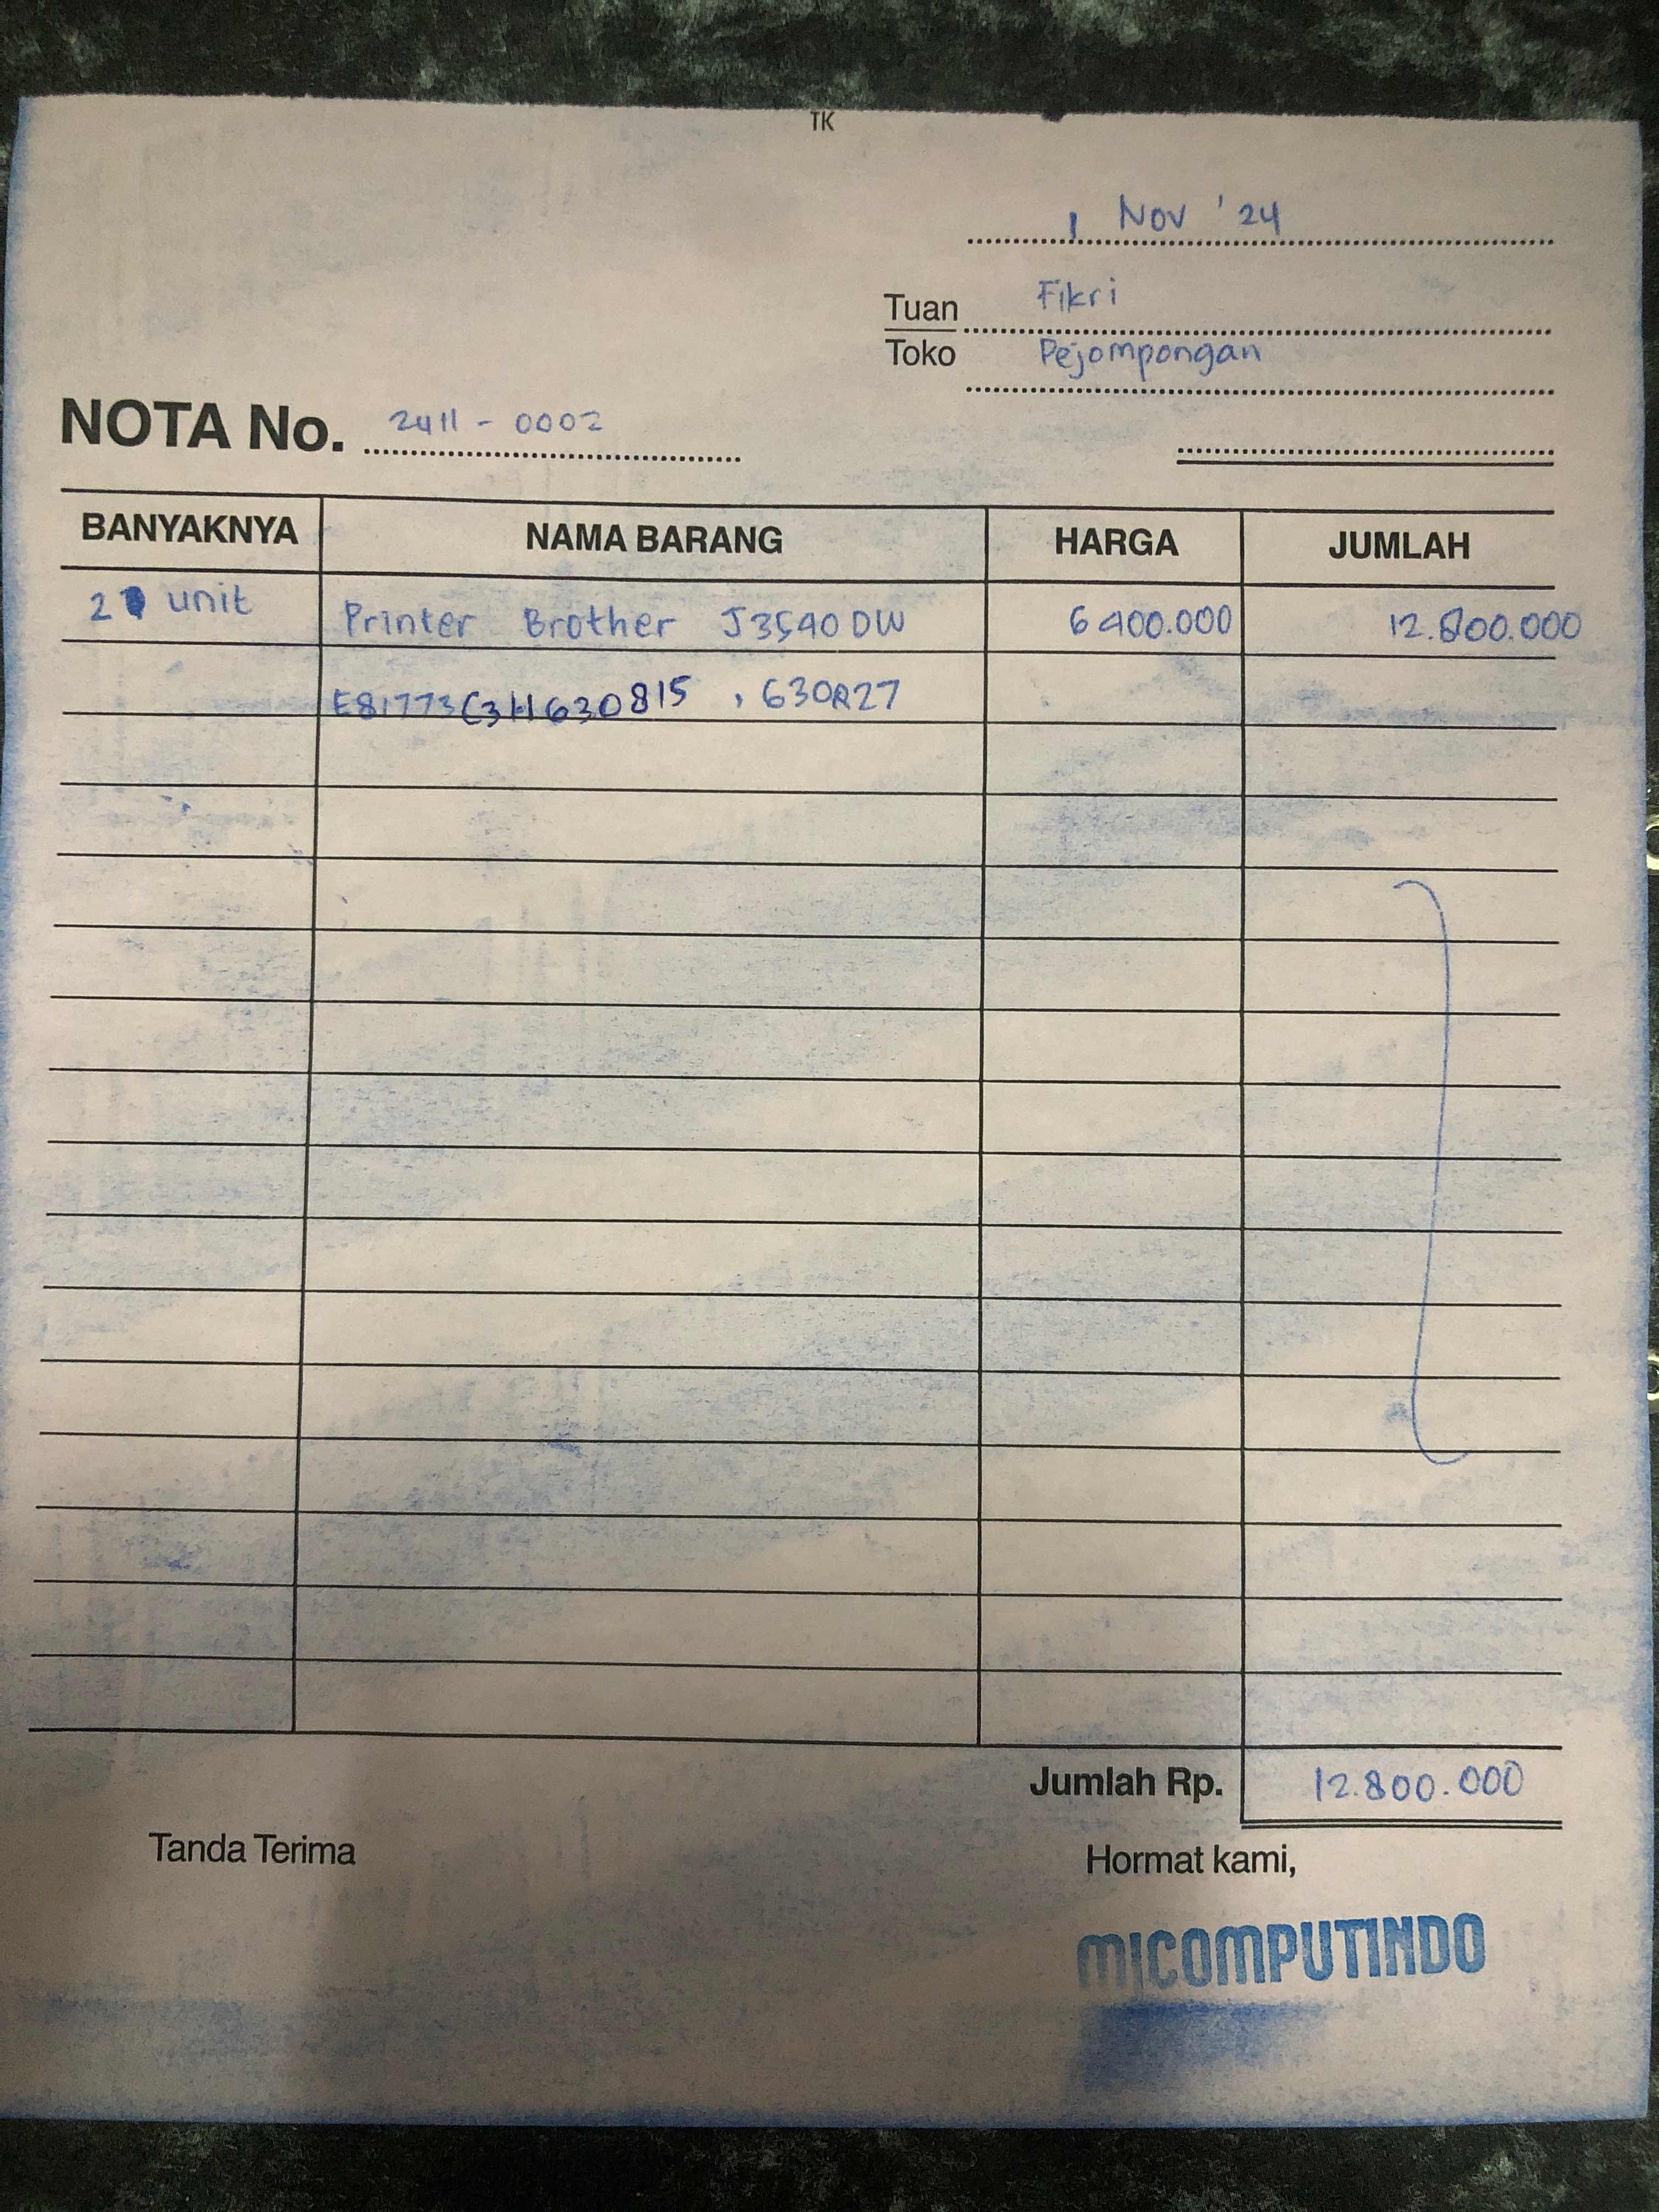 TK
1 Nov '24
Tuan Fikri
Toko Pejompongan
NOTA No. 2411 - 0002
BANYAKNYA NAMA BARANG HARGA JUMLAH
2 unit Printer Brother J3540DW 6400.000 12.800.000
E81773C3H630815 , 630827
Jumlah Rp. 12.800.000
Tanda Terima Hormat kami,
MICOMPUTINDO